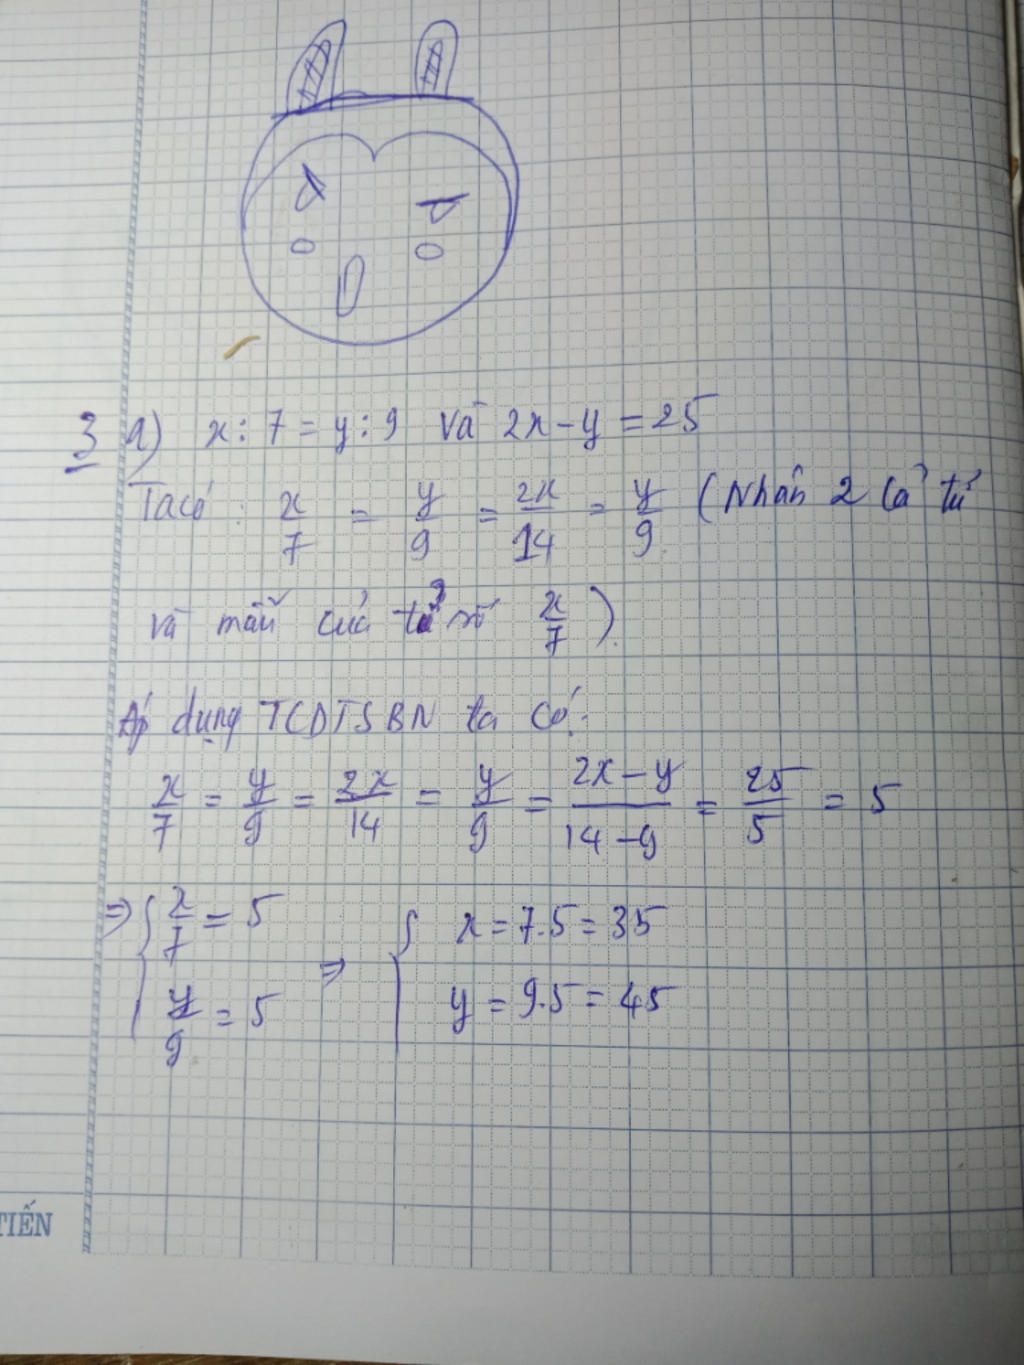 3 a) x : 7 = y : 9 và 2x - y = 25
Ta có : x/7 = y/9 = 2x/14 = y/9 (Nhân 2 cả tử
và mẫu của tỉ số x/7).
Áp dụng TCDTSBN ta có:
x/7 = y/9 = 2x/14 = y/9 = (2x - y)/(14 - 9) = 25/5 = 5
=> { x/7 = 5 => { x = 7.5 = 35
y/9 = 5 y = 9.5 = 45
TIẾN